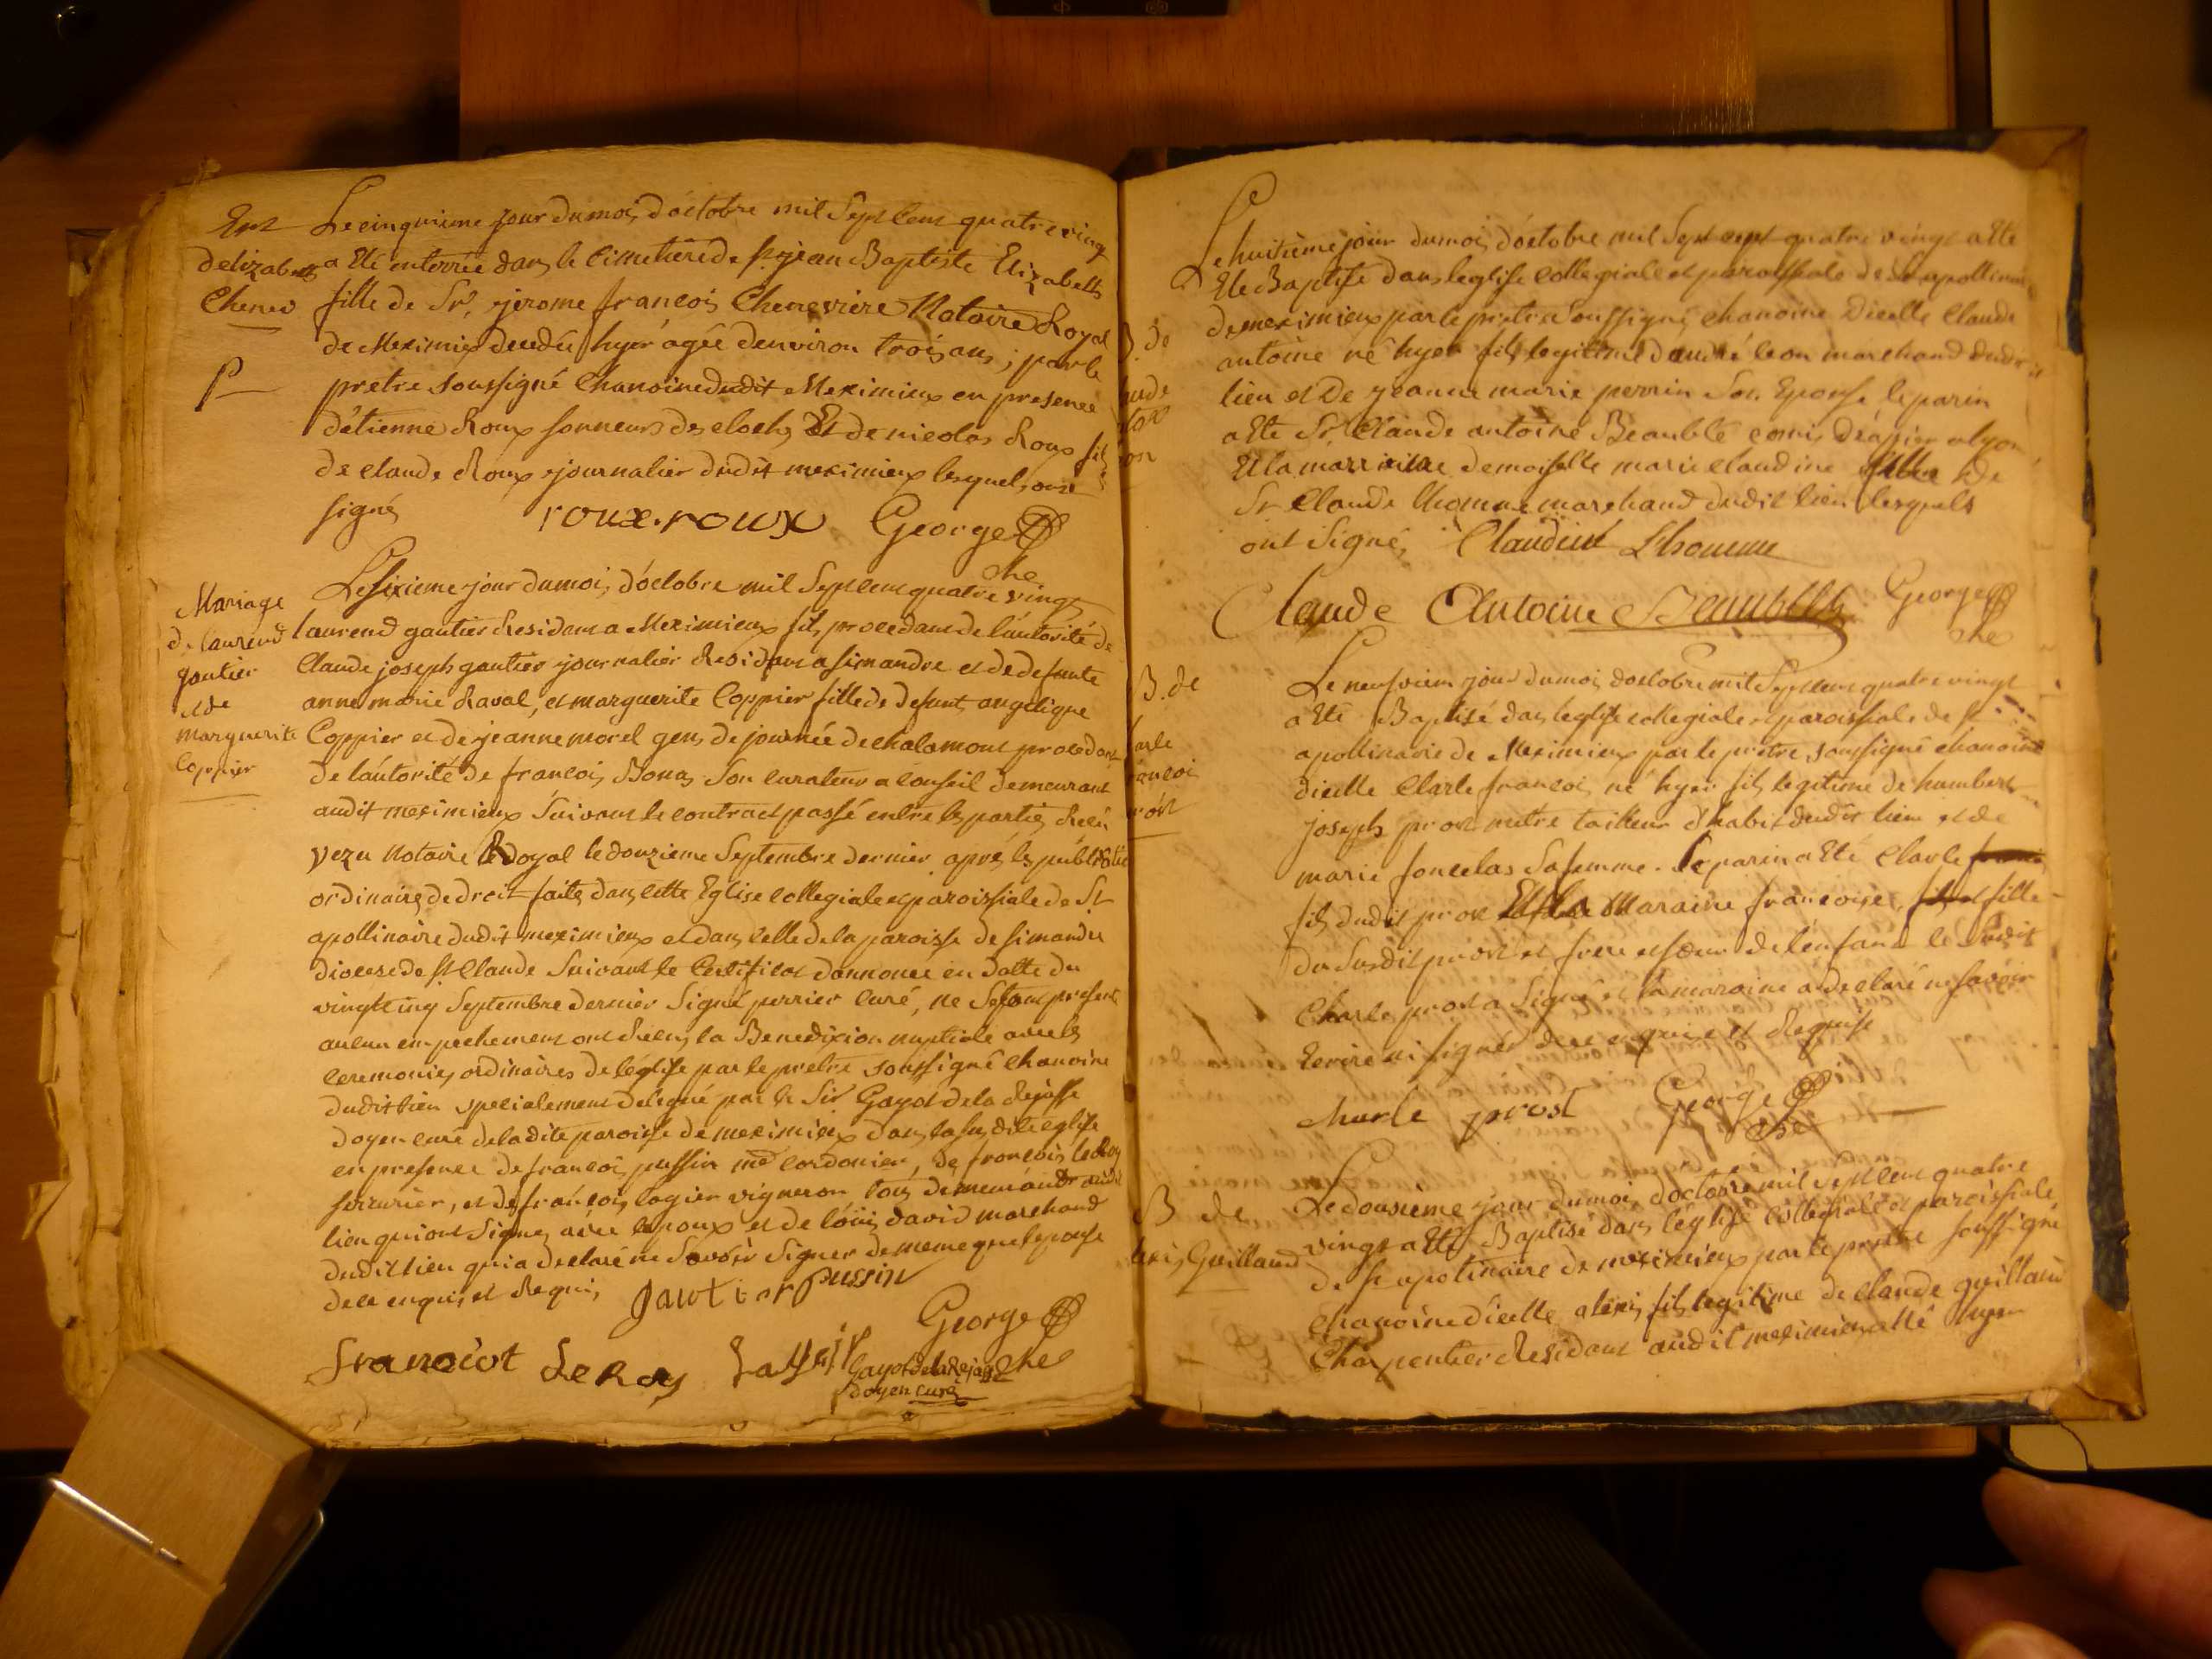 Ent
d'elizabeth
Chenev
Le cinquieme jour du mois d'octobre mil Sept Cent quatre vingt
a Eté enterrée dans le Cimetiere de st jean Baptiste Elizabeth
fille de Sr. jerome francois Chenevviere Notaire Royal
de Meximieux decedée hyer agée d'environ trois ans ; par le
pretre soussigné Chanoine dudit Meximieux en presence
d'étienne Roux sonneur des cloches Et de nicolas Roux fils
de claude Roux journalier dudit meximieux lesquels ont
signé
roux. roux George
che
Mariage
de laurend
gautier
et de
marguerite
Coppier
Le sixieme jour du mois d'octobre mil Sept cent quatre vingt
laurend gautier Residant a Meximieux fils procedant de l'autorité de
Claude joseph gautier journalier Residant a simandre et de defunte
anne marie Raval, et marguerite Coppier fille de defunt angelique
Coppier et de jeanne morel gens de journée de chalamont procedant
de l'autorité de francois Bonas Son curateur a conseil demeurant
audit meximieux Suivant le contract passé entre les parties Recu
vezu Notaire Royal le douzieme Septembre dernier après les publications
ordinaires de droit faites dans cette Eglise collegiale et paroissiale de St
apollinaire dudit meximieux et dans celle de la paroisse de simandre
diocese de st Claude Suivant le Certificat d'annonce en datte du
vingt cinq Septembre dernier Signé perrier curé, ne Setant presenté
aucun empechement ont Recu la Benediction nuptiale avec les
ceremonies ordinaires de l'église par le pretre soussigné chanoine
dudit lieu specialement delegué par le Sir Gayot de la Rejasse
doyen curé de ladite paroisse de meximieux dans la susdite eglise
en presence de francois pussin me cordonier, de francois le Roy
serrurier, et de francois lagier vigneron tous demeurant audit
lieu qui ont Signés avec lepoux et de louis david marchand
dudit lieu qui a declaré ne Savoir Signer de meme que lepouse
de ce enquis et Requis
gautier pussin
George
che
francoit LeRoy lagier
Gayot de la Rejasse
doyen curé
B. de
Le huitieme jour du mois d'octobre mil Sept cent quatre vingt a eté
Eté Baptisé dans leglise collegiale et paroissiale de St apollinaire
de meximieux par le pretre Soussigné chanoine d'icelle Claude
antoine né hyer fils legitime d'andré leon marchand dudit
lieu et de jeanne marie perrin Son Epouse, le parin
a Eté Sr. Claude antoine Beaublé comis a lyon
Et la marraine demoiselle marie claudine fille de
Sr Claude lhomme marchand dudit lieu lesquels
ont Signé, Claudine Lhomme
Claude Antoine Beaublé George
che
B. de
Le neufvieme jour du mois doctobre mil Sept cent quatre vingt
a Eté Baptisé dans leglise collegiale et paroissiale de st
apollinaire de Meximieux par le pretre soussigné chanoine
dicelle Charle francois né hyer fils legitime de humbert
joseph prost maitre tailleur d'habit dudit lieu et de
marie foncelas Sa femme. Le parin a Eté Charle
fils dudit prost Et la Maraine francoise, fille
du Susdit prost et frere et sœur de l'enfant le Susdit
Charle prost a Signé et la maraine a declaré ne savoir
Ecrire ni signer de ce enquise et Requise
charle prost George
che
B de
alexis Guillaud
Le dousieme jour du mois d'octobre mil Sept cent quatre
vingt a Eté Baptisé dans l'église collegiale et paroissiale
de st apolinaire de meximieux par le pretre soussigné
chanoine d'icelle alexis fils legitime de claude guillaud
Charpentier Residant audit meximieux né hyer